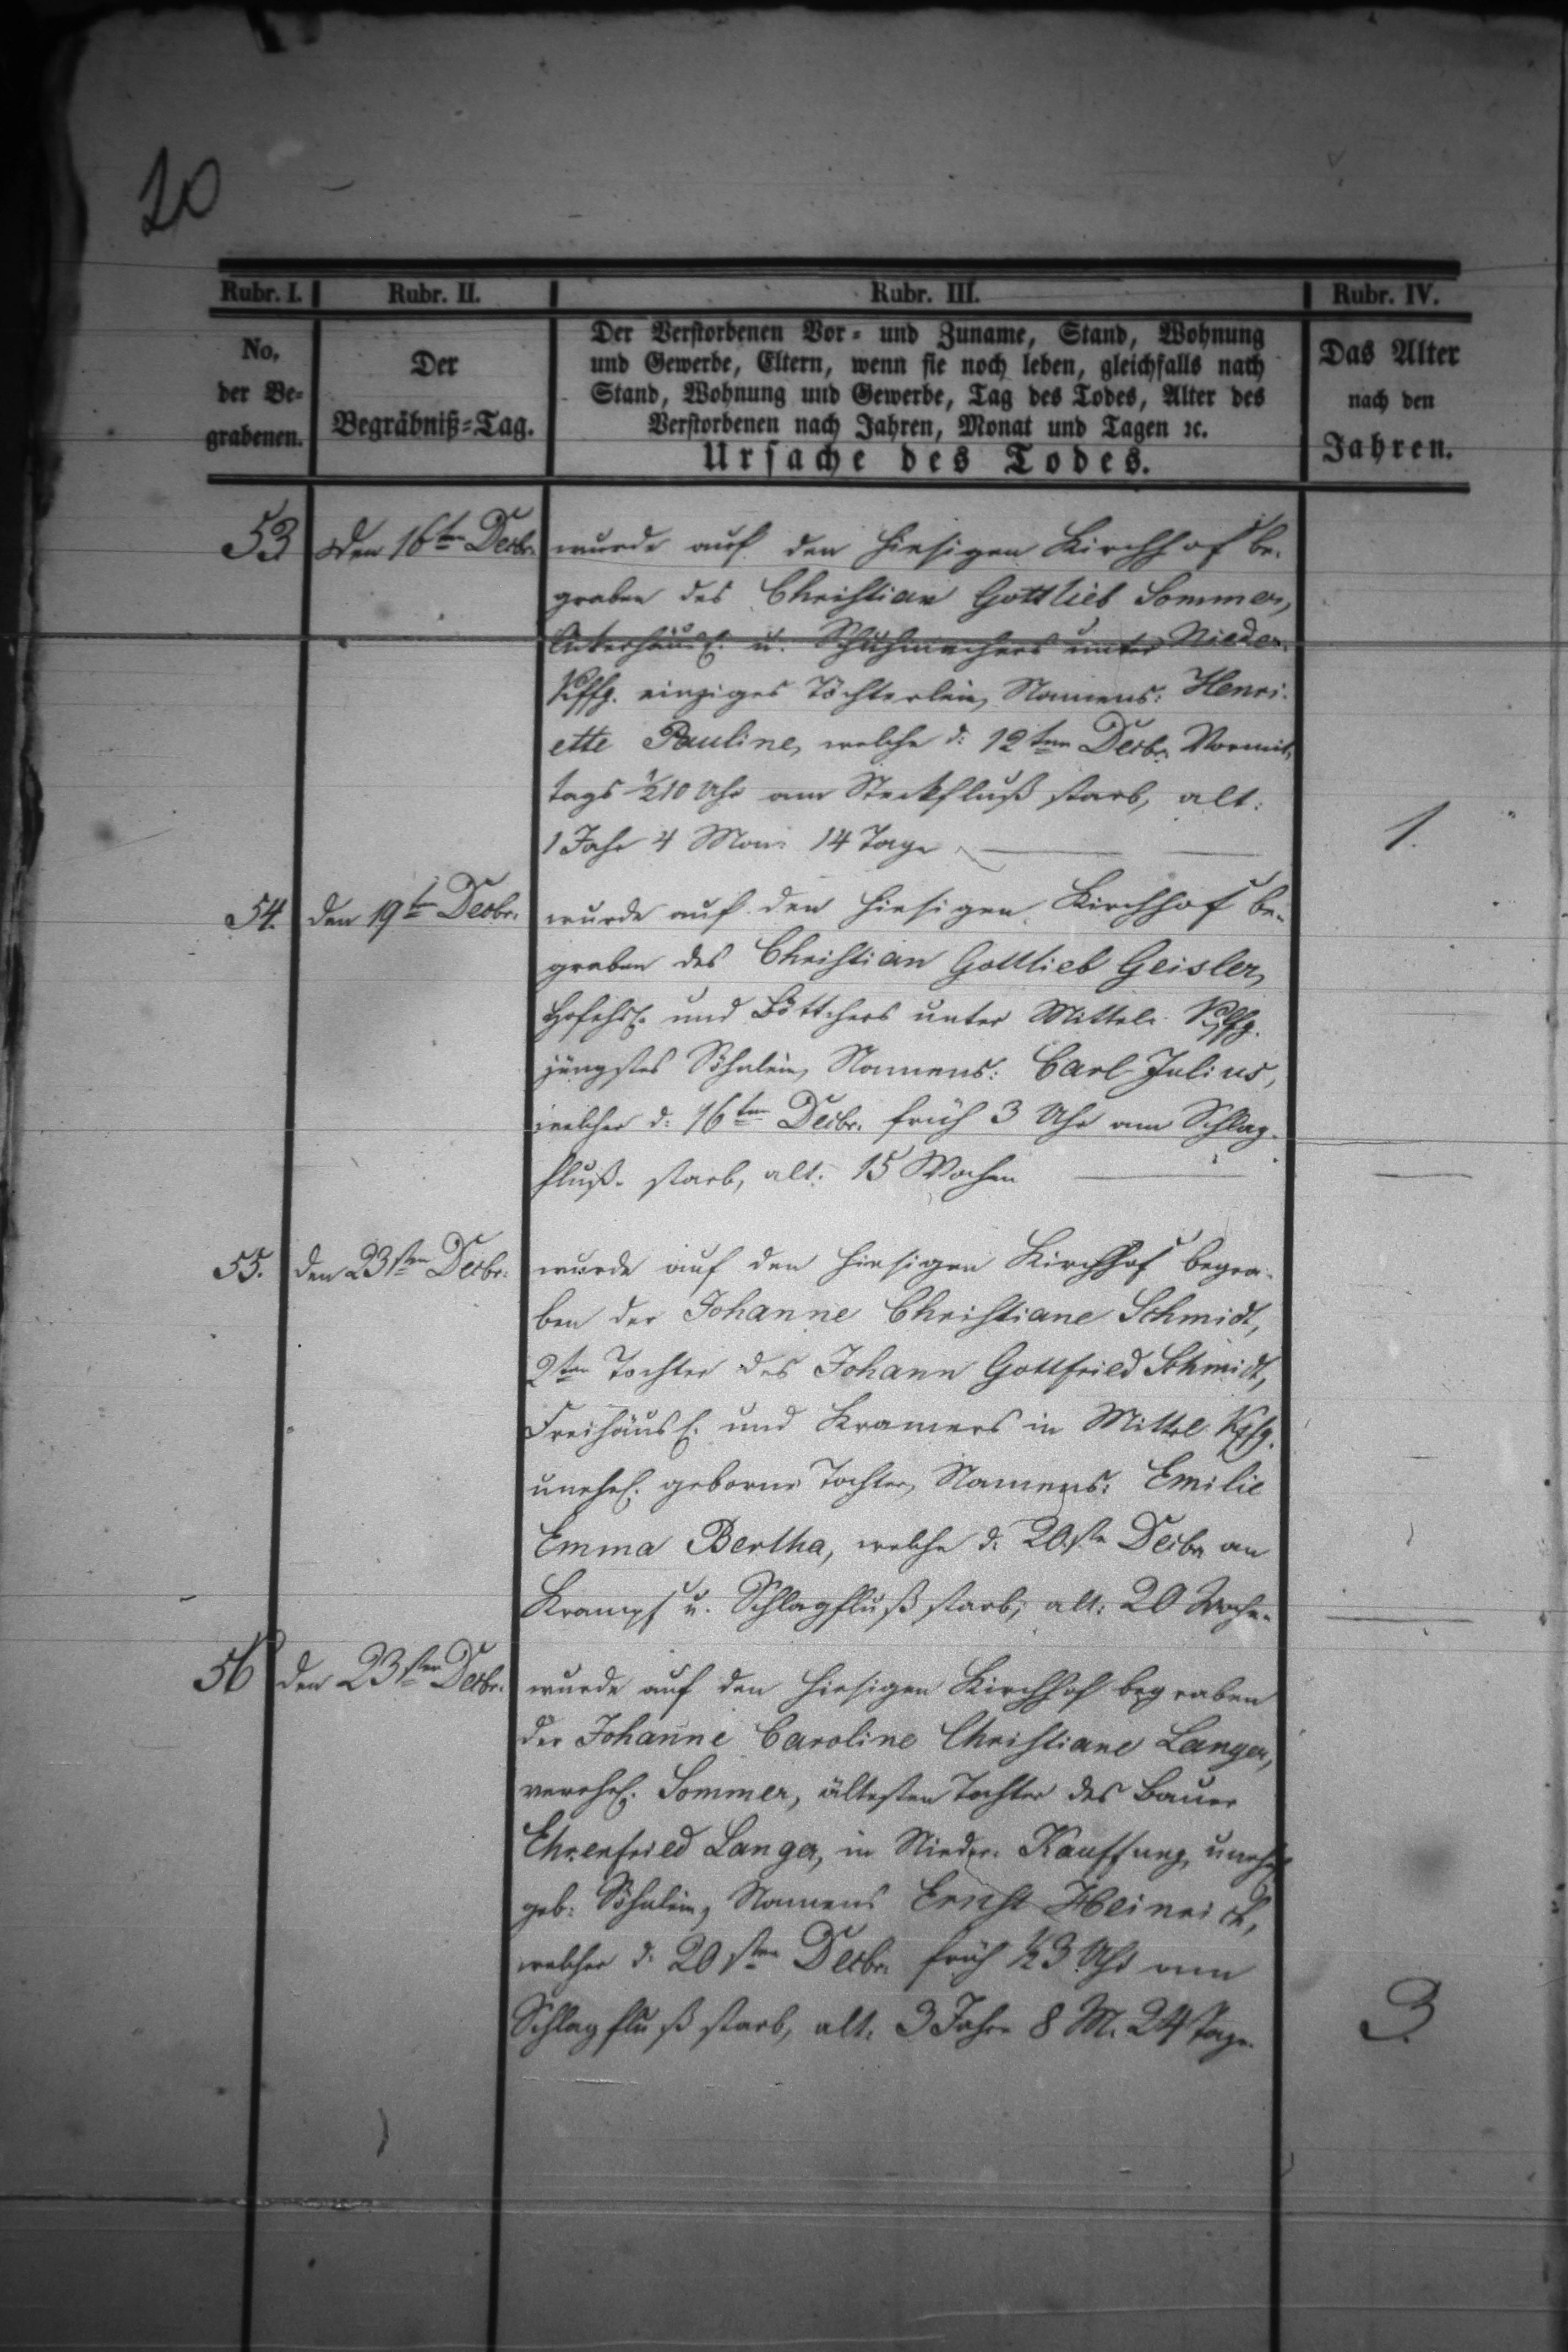 20
Rubr. I. Rubr. II. Rubr. III. Rubr. IV.
No.
der Be-
grabenen.
Der
Begräbniß-Tag.
Der Verstorbenen Vor- und Zuname, Stand, Wohnung
und Gewerbe, Eltern, wenn sie noch leben, gleichfalls nach
Stand, Wohnung und Gewerbe, Tag des Todes, Alter des
Verstorbenen nach Jahren, Monat und Tagen ꝛc.
Ursache des Todes.
Das Alter
nach den
Jahren.
53 den 16ten Decbr. wurde auf den hiesigen Kirchhof be-
graben des Christian Gottlieb Sommer,
u. Schuhmachers unter Nieder-
Kffg. einziges Töchterlein, Namens: Henri-
ette Pauline, welche d: 12ten Decbr. Vormit-
tags ½10 Uhr am Steckfluß starb, alt:
1 Jahr 4 Mon: 14 Tage 1.
54. den 19ten Decbr. wurde auf den hiesigen Kirchhof be-
graben des Christian Gottlieb Geisler,
und Böttchers unter Mittel- Kffg.
jüngstes Söhnlein, Namens: Carl Julius,
welcher d: 16ten Decbr. früh 3 Uhr am Schlag-
fluß starb, alt: 15 Wochen
55. den 23sten Decbr. wurde auf den hiesigen Kirchhof begra-
ben der Johanne Christiane Schmidt,
2ten Tochter des Johann Gottfried Schmidt,
Freihäusl. und Kramers in Mittel Kffg.
unehel. geborne Tochter, Namens: Emilie
Emma Bertha, welche d: 20ste Decbr an
Krampf u. Schlagfluß starb, alt: 20 Woche.
56 den 23sten Decbr. wurde auf den hiesigen Kirchhof begraben
der Johanne Caroline Christiane Langer,
verehel. Sommer, ältesten Tochter des Bauer
Ehrenfried Langer, in Nieder- Kauffung, unehel
geb: Söhnlein, Namens Ernst Heinrich,
welcher d: 20sten Decbr. früh ½3 Uhr am
Schlagfluß starb, alt: 3 Jahre 8 M. 24 Tage. 3.